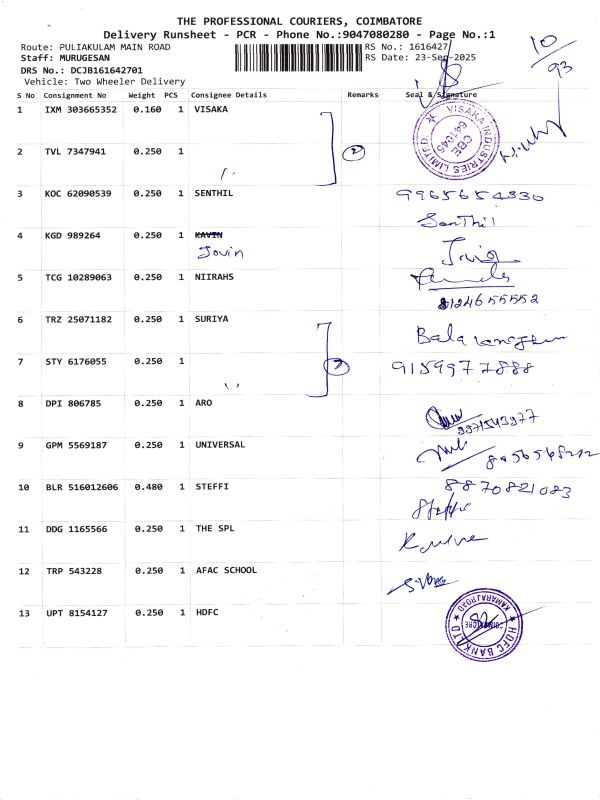 THE PROFESSIONAL COURIERS, COIMBATORE
Delivery Runsheet - PCR - Phone No.:9047080280 - Page No.:1
Route: PULIAKULAM MAIN ROAD RS No.: 1616427
Staff: MURUGESAN RS Date: 23-Sep-2025
DRS No.: DCJB161642701
Vehicle: Two Wheeler Delivery
10
93
S No Consignment No Weight PCS Consignee Details Remarks Seal & Signature
1 IXM 303665352 0.160 1 VISAKA
VISAKA INDUSTRIES LIMITED
CBE
641045
2 TVL 7347941 0.250 1
2
3 KOC 62090539 0.250 1 SENTHIL 9965654330
Senthil
4 KGD 989264 0.250 1 KAVIN
Jovin
5 TCG 10289063 0.250 1 NIIRAHS
8124655552
6 TRZ 25071182 0.250 1 SURIYA
Bala
7 STY 6176055 0.250 1 9159977888
8 DPI 806785 0.250 1 ARO
9971543977
9 GPM 5569187 0.250 1 UNIVERSAL
10 BLR 516012606 0.480 1 STEFFI 8870821083
Steffi
11 DDG 1165566 0.250 1 THE SPL
12 TRP 543228 0.250 1 AFAC SCHOOL
13 UPT 8154127 0.250 1 HDFC
HDFC BANK LTD
KAMARAJ ROAD
COIMBATORE